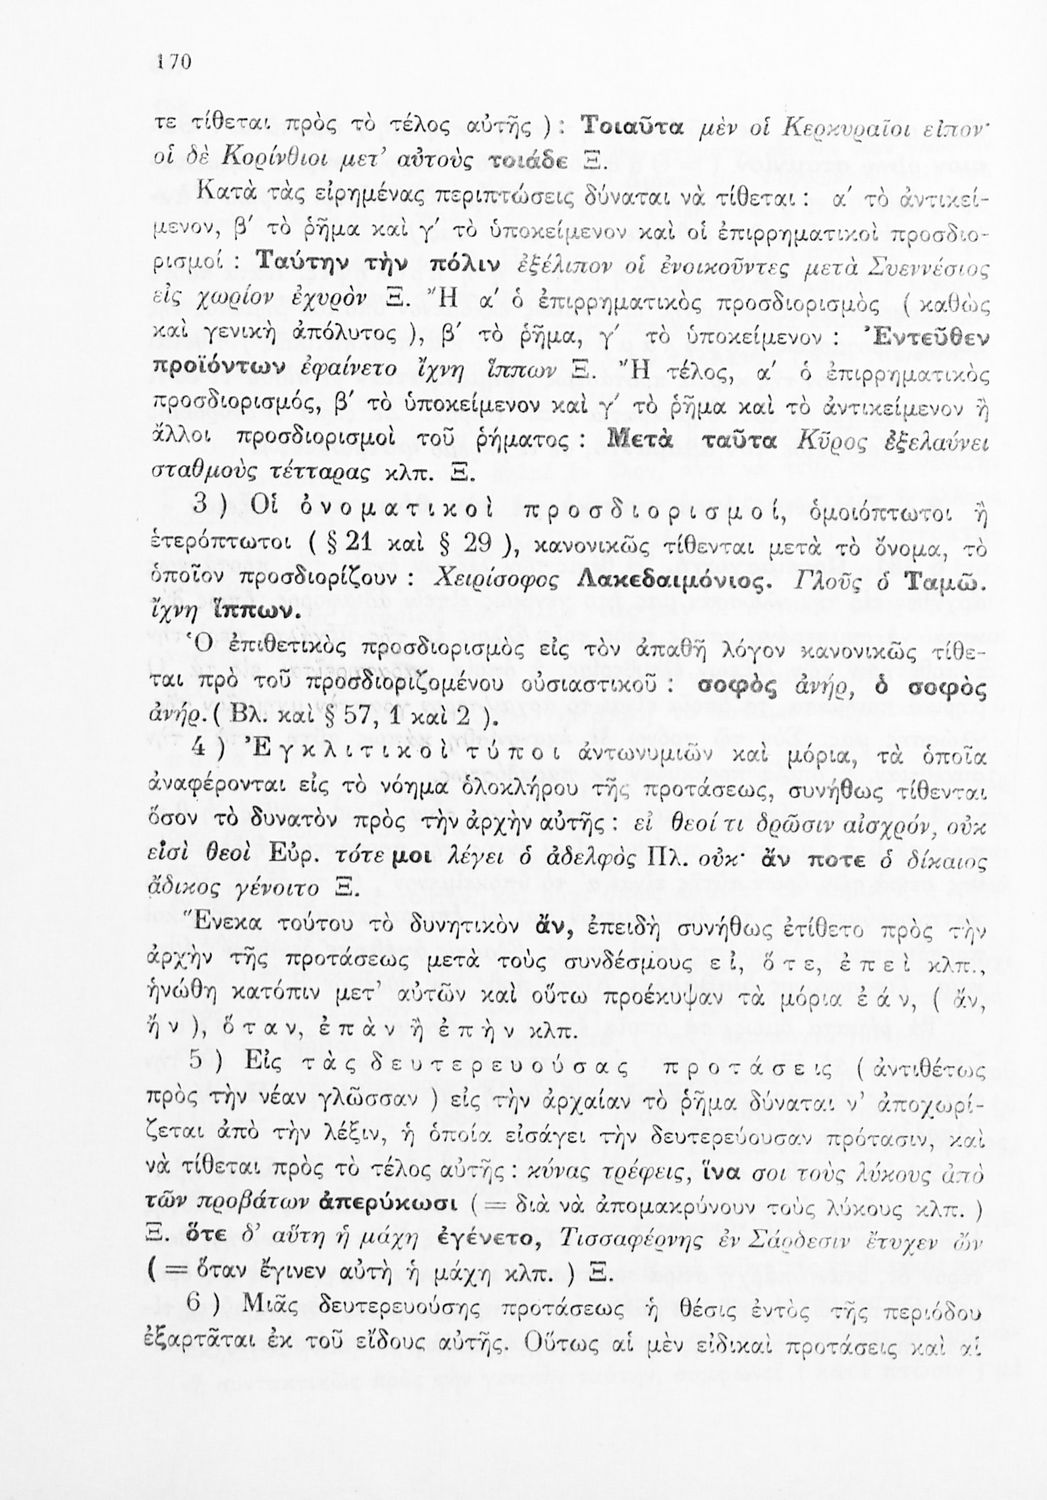 170
τε τίθεται πρὸς τὸ τέλος αὐτῆς ) : Τοιαῦτα μὲν οἱ Κερκυραῖοι εἶπον·
οἱ δὲ Κορίνθιοι μετ’ αὐτοὺς τοιάδε Ξ.
Κατὰ τὰς εἰρημένας περιπτώσεις δύναται νὰ τίθεται : α′ τὸ ἀντικεί-
μενον, β′ τὸ ῥῆμα καὶ γ′ τὸ ὑποκείμενον καὶ οἱ ἐπιρρηματικοὶ προσδιο-
ρισμοί : Ταύτην τὴν πόλιν ἐξέλιπον οἱ ἐνοικοῦντες μετὰ Συεννέσιος
εἰς χωρίον ἐχυρὸν Ξ. Ἢ α′ ὁ ἐπιρρηματικὸς προσδιορισμὸς ( καθὼς
καὶ γενικὴ ἀπόλυτος ), β′ τὸ ῥῆμα, γ′ τὸ ὑποκείμενον : Ἐντεῦθεν
προϊόντων ἐφαίνετο ἴχνη ἵππων Ξ. Ἢ τέλος, α′ ὁ ἐπιρρηματικὸς
προσδιορισμός, β′ τὸ ὑποκείμενον καὶ γ′ τὸ ῥῆμα καὶ τὸ ἀντικείμενον ἢ
ἄλλοι προσδιορισμοὶ τοῦ ῥήματος : Μετὰ ταῦτα Κῦρος ἐξελαύνει
σταθμοὺς τέτταρας κλπ. Ξ.
3 ) Οἱ ὀνοματικοὶ προσδιορισμοί, ὁμοιόπτωτοι ἢ
ἑτερόπτωτοι ( § 21 καὶ § 29 ), κανονικῶς τίθενται μετὰ τὸ ὄνομα, τὸ
ὁποῖον προσδιορίζουν : Χειρίσοφος Λακεδαιμόνιος. Γλοῦς ὁ Ταμῶ.
ἴχνη ἵππων.
Ὁ ἐπιθετικὸς προσδιορισμὸς εἰς τὸν ἀπαθῆ λόγον κανονικῶς τίθε-
ται πρὸ τοῦ προσδιοριζομένου οὐσιαστικοῦ : σοφὸς ἀνήρ, ὁ σοφὸς
ἀνήρ. ( Βλ. καὶ § 57, 1 καὶ 2 ).
4 ) Ἐγκλιτικοὶ τύποι ἀντωνυμιῶν καὶ μόρια, τὰ ὁποῖα
ἀναφέρονται εἰς τὸ νόημα ὁλοκλήρου τῆς προτάσεως, συνήθως τίθενται
ὅσον τὸ δυνατὸν πρὸς τὴν ἀρχὴν αὐτῆς : εἰ θεοί τι δρῶσιν αἰσχρόν, οὐκ
εἰσὶ θεοὶ Εὐρ. τότε μοι λέγει ὁ ἀδελφὸς Πλ. οὐκ· ἄν ποτε ὁ δίκαιος
ἄδικος γένοιτο Ξ.
Ἕνεκα τούτου τὸ δυνητικὸν ἄν, ἐπειδὴ συνήθως ἐτίθετο πρὸς τὴν
ἀρχὴν τῆς προτάσεως μετὰ τοὺς συνδέσμους εἰ, ὅτε, ἐπεὶ κλπ.,
ἡνώθη κατόπιν μετ’ αὐτῶν καὶ οὕτω προέκυψαν τὰ μόρια ἐάν, ( ἄν,
ἤν ), ὅταν, ἐπὰν ἢ ἐπὴν κλπ.
5 ) Εἰς τὰς δευτερευούσας προτάσεις ( ἀντιθέτως
πρὸς τὴν νέαν γλῶσσαν ) εἰς τὴν ἀρχαίαν τὸ ῥῆμα δύναται ν’ ἀποχωρί-
ζεται ἀπὸ τὴν λέξιν, ἡ ὁποία εἰσάγει τὴν δευτερεύουσαν πρότασιν, καὶ
νὰ τίθεται πρὸς τὸ τέλος αὐτῆς : κύνας τρέφεις, ἵνα σοι τοὺς λύκους ἀπὸ
τῶν προβάτων ἀπερύκωσι ( = διὰ νὰ ἀπομακρύνουν τοὺς λύκους κλπ. )
Ξ. ὅτε δ’ αὕτη ἡ μάχη ἐγένετο, Τισσαφέρνης ἐν Σάρδεσιν ἔτυχεν ὢν
( = ὅταν ἔγινεν αὐτὴ ἡ μάχη κλπ. ) Ξ.
6 ) Μιᾶς δευτερευούσης προτάσεως ἡ θέσις ἐντὸς τῆς περιόδου
ἐξαρτᾶται ἐκ τοῦ εἴδους αὐτῆς. Οὕτως αἱ μὲν εἰδικαὶ προτάσεις καὶ αἱ